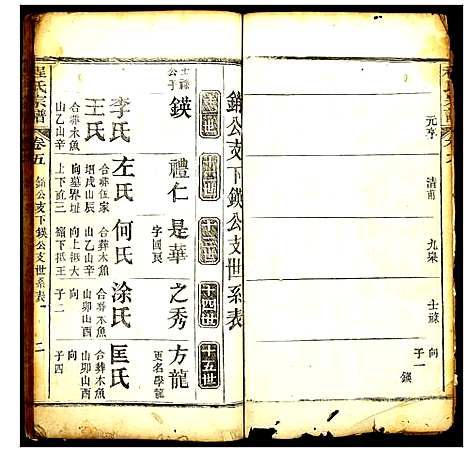 元亨
清甫
九梁
士祿
向
子一
鍈
銷公支下鍈公支世系表
十一世
十二世
十三世
十四世
十五世
士祿
公子
鍈
禮仁
是華
字國良
之秀
方龍
更名學龍
李氏
左氏
何氏
涂氏
匡氏
王氏
合葬木魚
山乙山辛
合葬伍家
塆戌山辰
向墓界址
上下直三
合葬木魚
山乙山辛
向上抵大
嶺下抵王
合葬木魚
山卯山酉
向
子二
合葬木魚
山卯山酉
向
子四
程氏宗譜
卷五
銷公支下鍈公支世系表
二